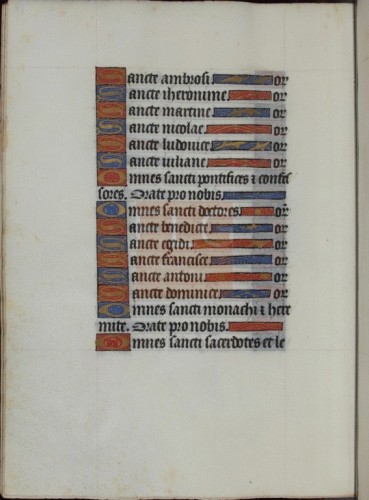 Sancte ambrosi or
Sancte iheronime or
Sancte martine or
Sancte nicolae or
Sancte ludovice or
Sancte iuliane or
Omnes sancti pontifices ⁊ confes
sores. Orate pro nobis.
Omnes sancti doctores or
Sancte benedicte or
Sancte egidi or
Sancte francisce or
Sancte antoni or
Sancte dominice or
Omnes sancti monachi ⁊ here
mite. Orate pro nobis.
Omnes sancti sacerdotes et le